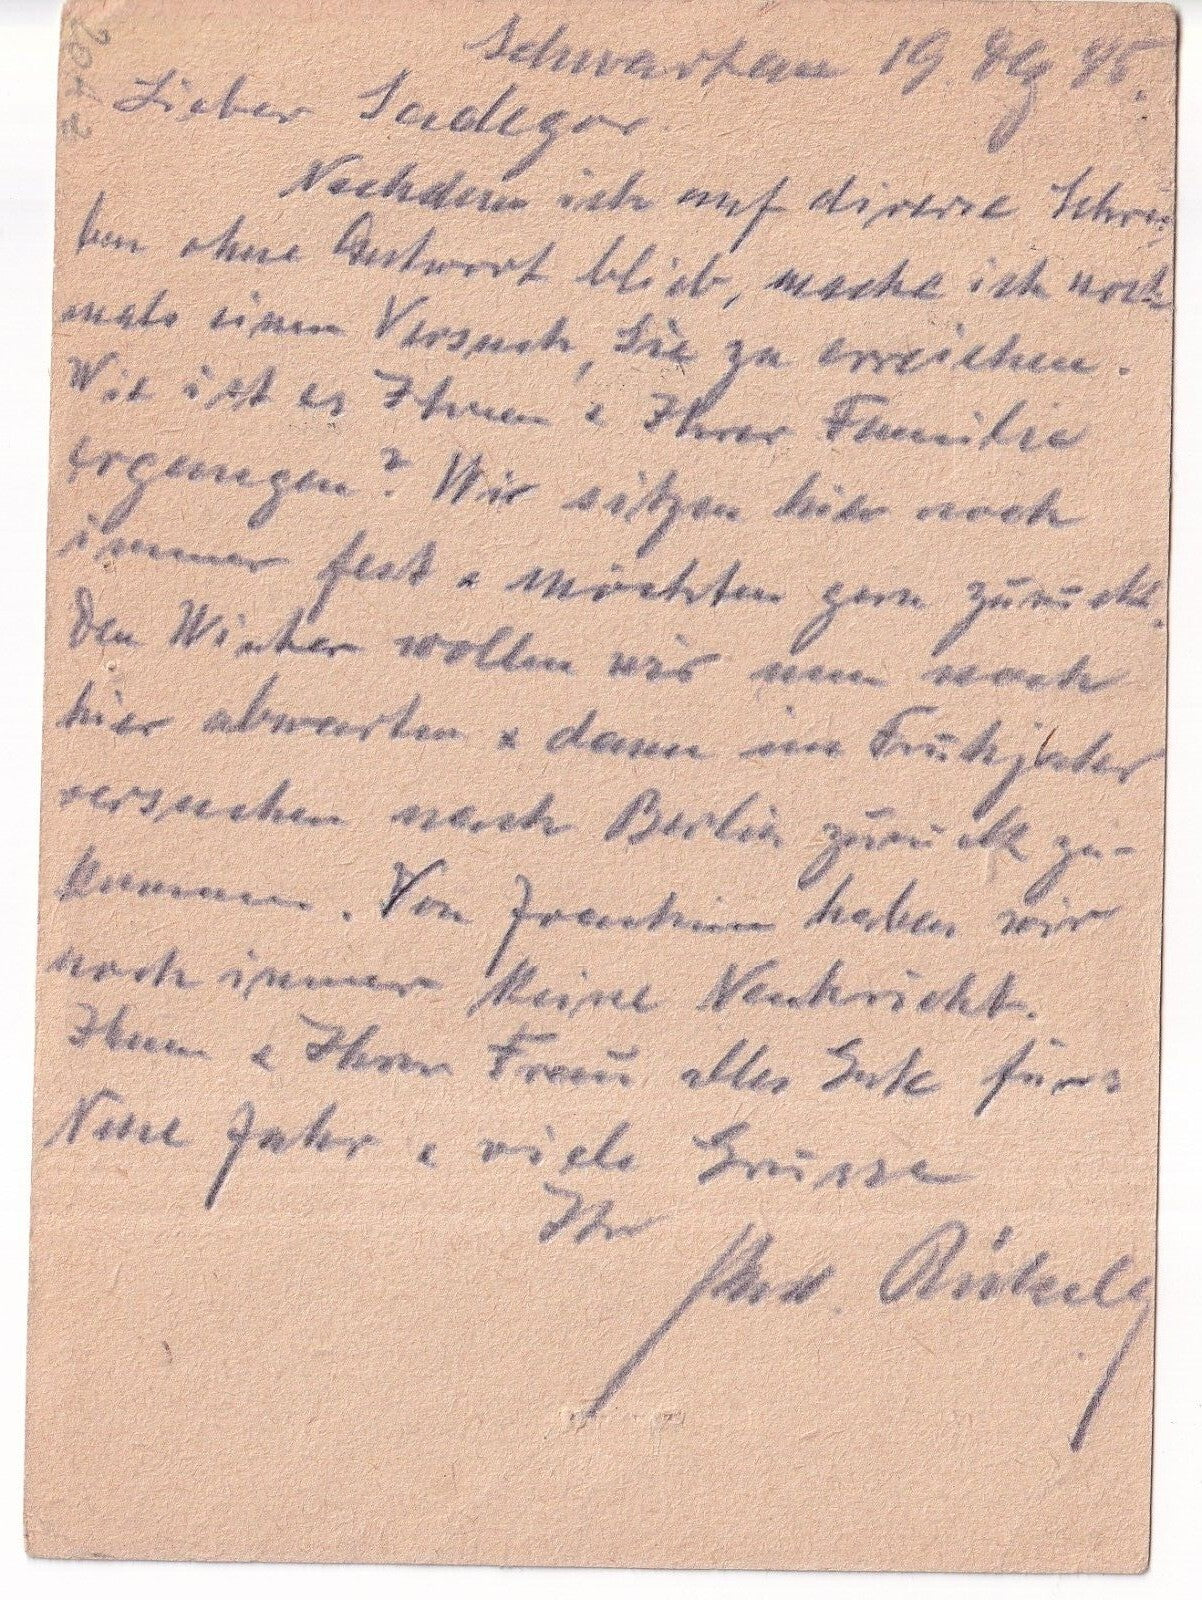 Schwartau 19. 45.
Lieber Sadegor.
Nachdem ich auf diverse Schrei-
ben ohne Antwort blieb, mache ich noch
mals einen Versuch, Sie zu erreichen.
Wie ist es Ihnen & Ihrer Familie
ergangen? Wir sitzen hier noch
immer fest & möchten gern zurück.
Den Winter wollen wir nun noch
hier abwarten & dann im Frühjahr
versuchen nach Berlin zurück zu-
kommen. Von Joachim haben wir
noch immer keine Nachricht.
Ihnen & Ihrer Frau alles Gute fürs
Neue Jahr & viele Grüsse
Ihr